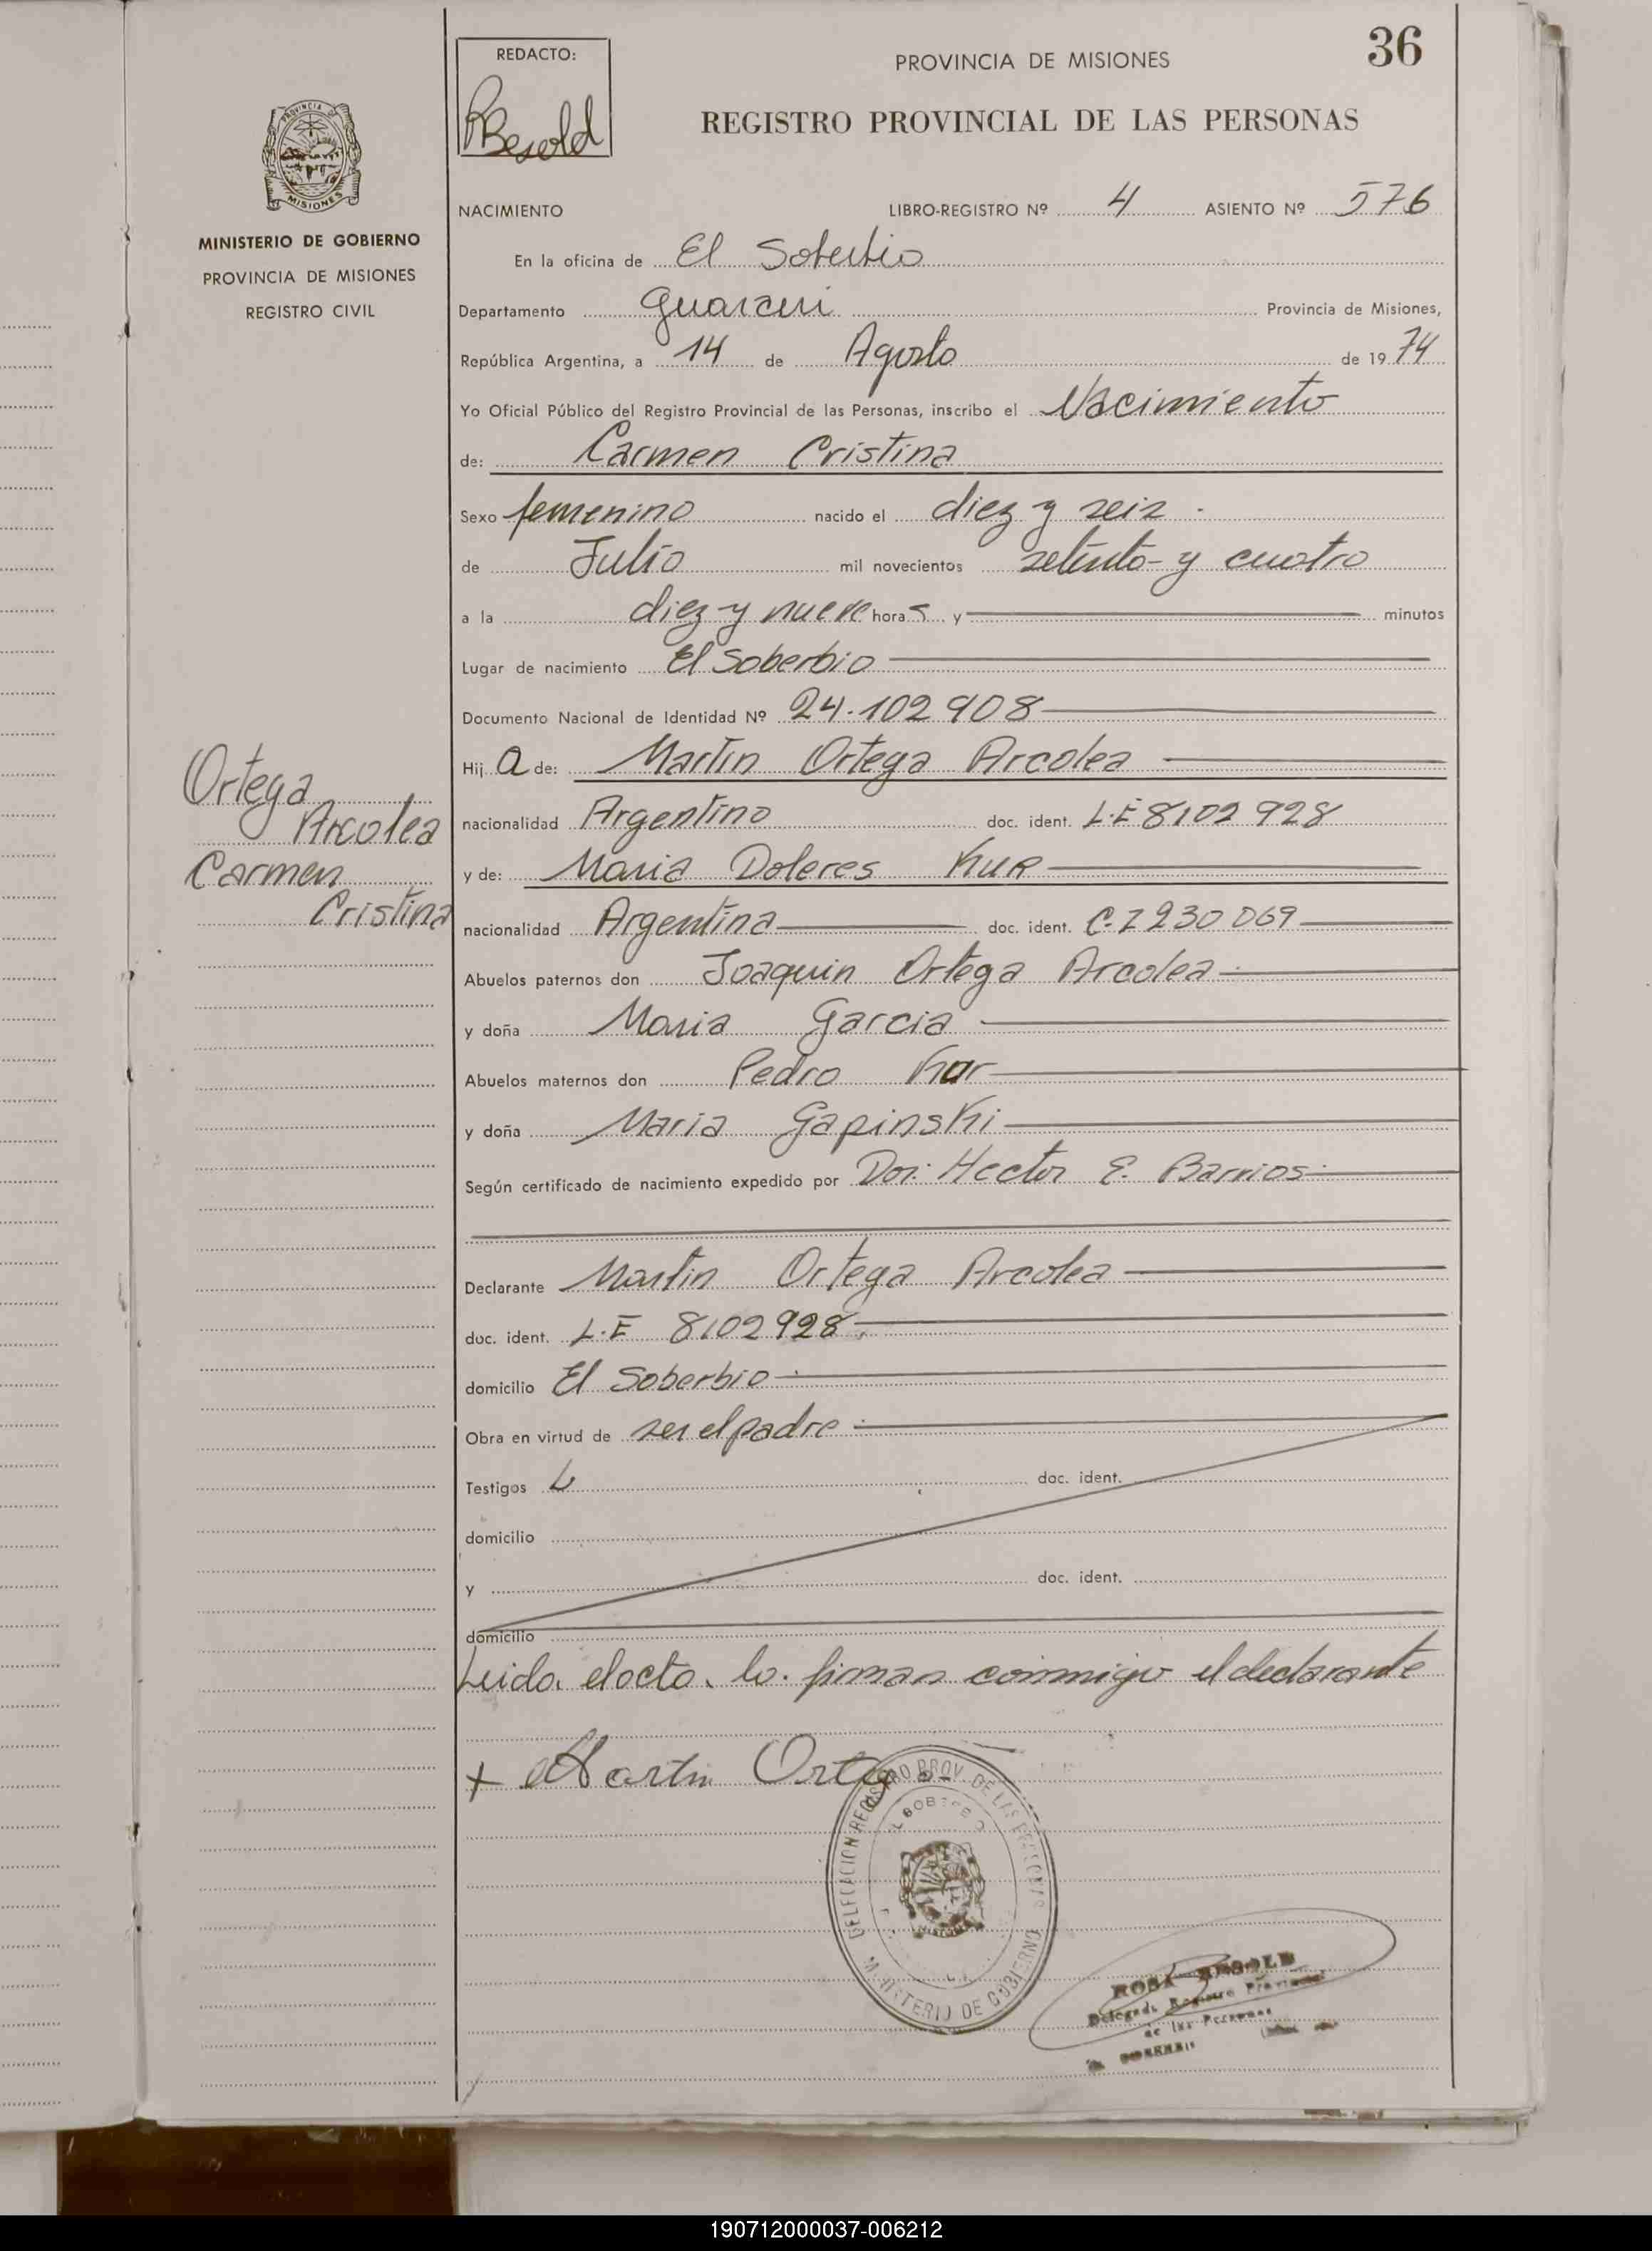 36
REDACTO:
RBesold
PROVINCIA DE MISIONES
REGISTRO PROVINCIAL DE LAS PERSONAS
PROVINCIA
MISIONES
MINISTERIO DE GOBIERNO
PROVINCIA DE MISIONES
REGISTRO CIVIL
NACIMIENTO LIBRO-REGISTRO Nº 4 ASIENTO Nº 576
En la oficina de El Soberbio
Departamento Guarani Provincia de Misiones,
República Argentina, a 14 de Agosto de 1974
Yo Oficial Público del Registro Provincial de las Personas, inscribo el Nacimiento
de: Carmen Cristina
Sexo femenino nacido el diez y seis
de Julio mil novecientos setenta y cuatro
a la diez y nueve horas y minutos
Lugar de nacimiento El Soberbio
Documento Nacional de Identidad Nº 24.102908
Hija de: Martin Ortega Arcolea
nacionalidad Argentino doc. ident. L.E 8102928
y de: Maria Doleres Kur
nacionalidad Argentina doc. ident. C.I 230069
Abuelos paternos don Joaquin Ortega Arcolea
y doña Maria Garcia
Abuelos maternos don Pedro Kur
y doña Maria Gapinski
Según certificado de nacimiento expedido por Dor. Hector E. Barrios
Declarante Martin Ortega Arcolea
doc. ident. L.E 8102928
domicilio El Soberbio
Obra en virtud de ser el padre
Testigos doc. ident.
domicilio
y doc. ident.
domicilio
Leida el acta, la firman conmigo el declarante
+ Martin Ortega
Ortega
Arcolea
Carmen
Cristina
DELEGACION REGISTRO PROV. DE LAS PERSONAS
MINISTERIO DE GOBIERNO
ROSA BESOLD
Delegada Registro Provincial
de las Personas
SOBERBIO
190712000037-006212